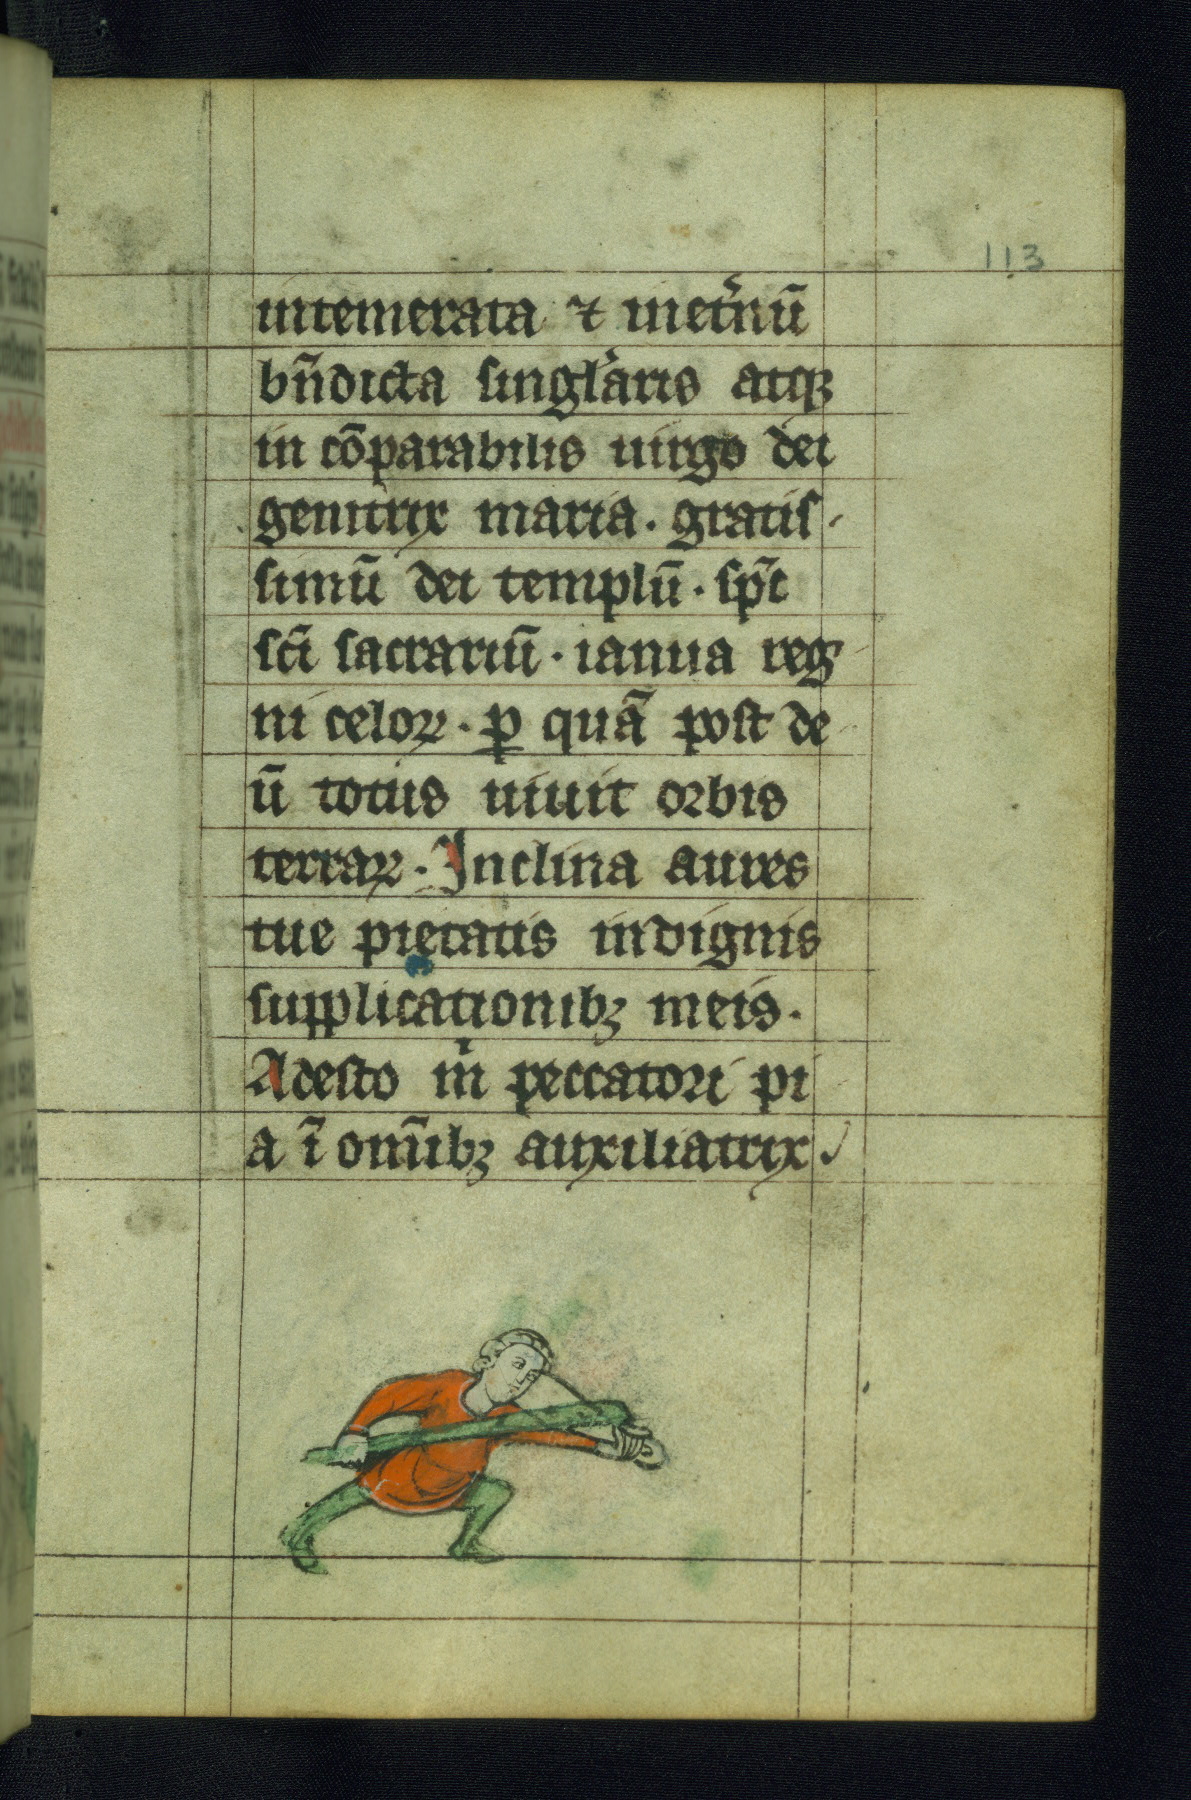 113
intemerata ⁊ inet̾nū
bn̄dicta singl̾aris atqꝫ
in cōparabilis uirgo dei
genitrix maria. gratis
simū dei templū. sp̄c
sc̄i sacrariū. ianua reg
ni celoꝝ. ꝑ quā post de
ū totus uiuit orbis
terraꝝ. Inclina aures
tue pietatis indignis
supplicationibꝫ meis.
Adesto mͥ peccatori pi
a ī om̄ibꝫ auxiliatrix.